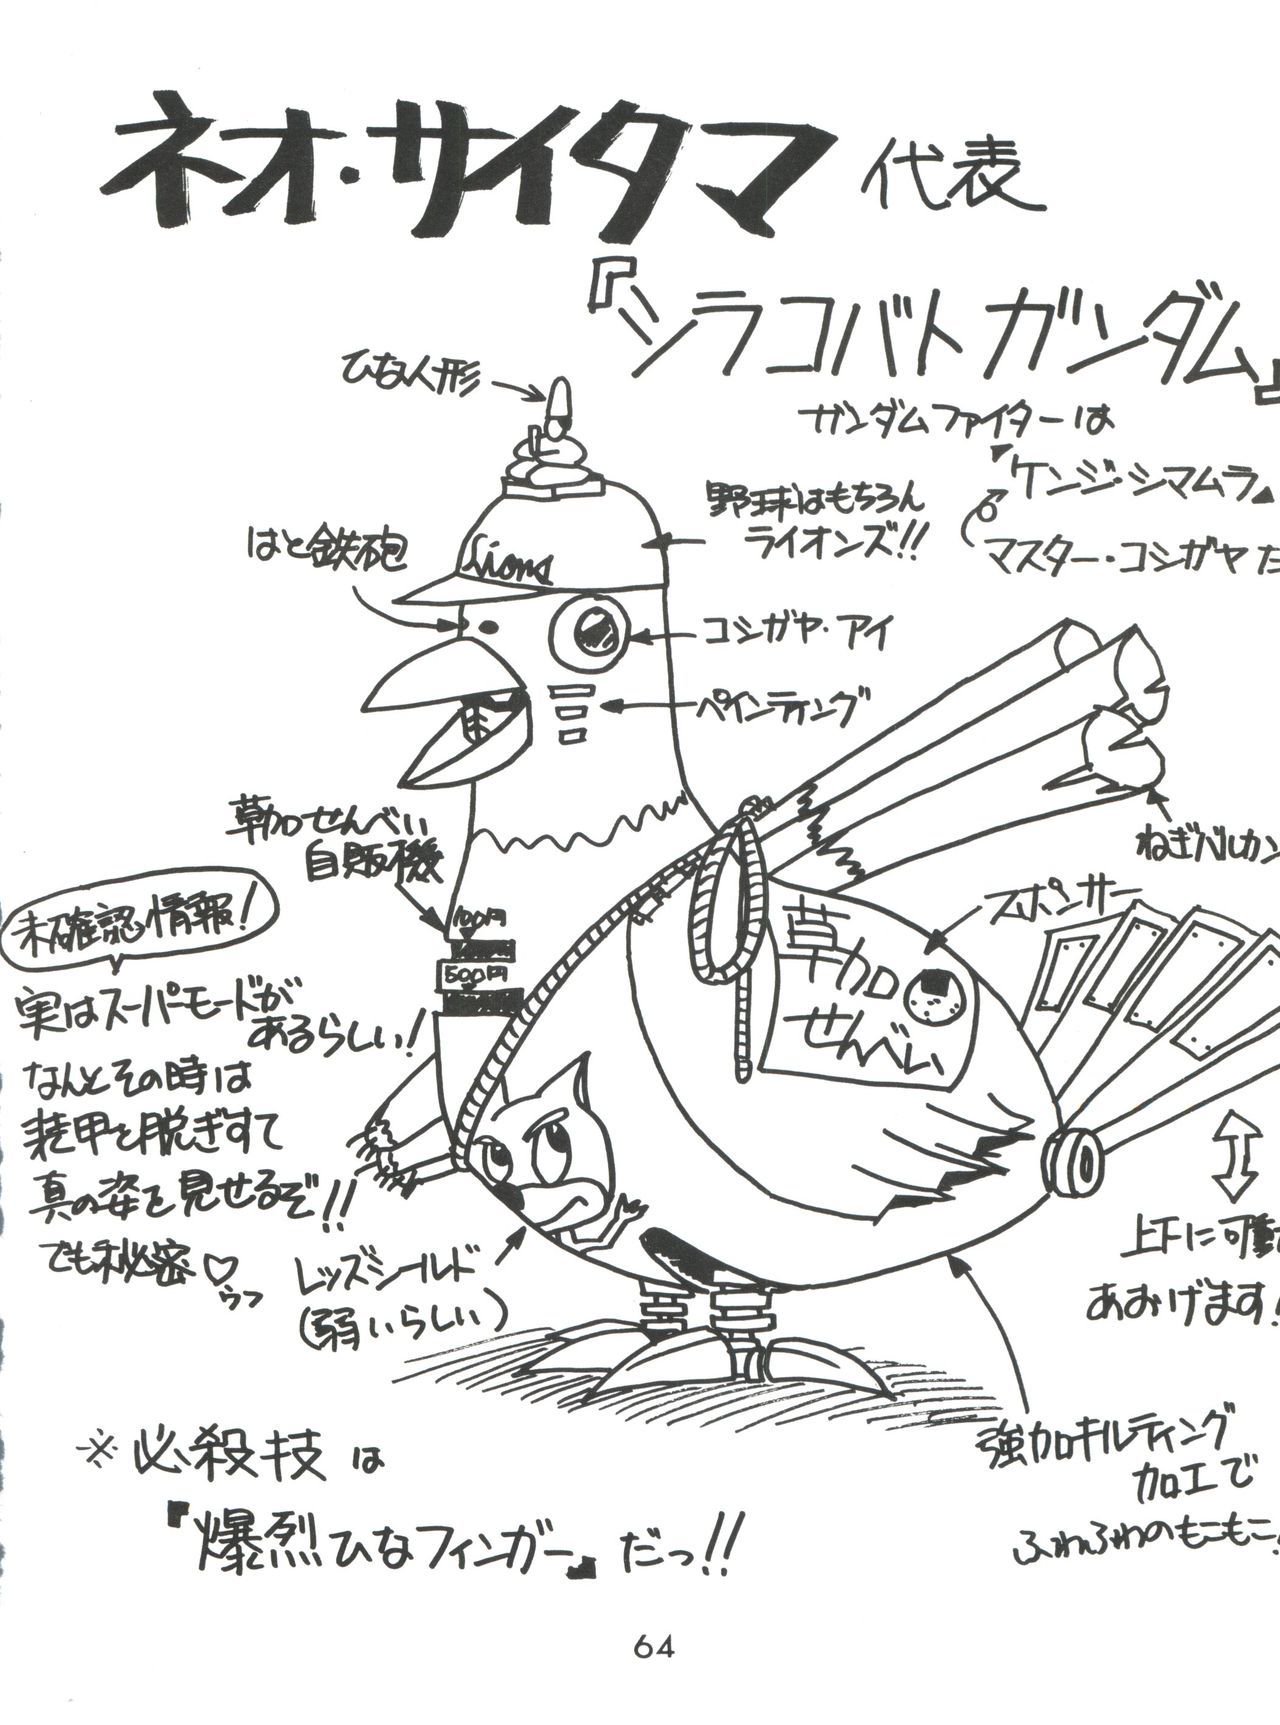 ネオ・サイタマ 代表
『シラコバト ガンダム』
ガンダムファイターは
『ケンジ・シマムラ』
マスター・コシガヤ だ
ひな人形
野球はもちろん
ライオンズ!!
はと鉄砲
Lions
コシガヤ・アイ
ペインティング
ねぎバルカン
草加せんべい
自販機
100円
500円
スポンサー
草加
せんべい
未確認情報!
実はスーパーモードが
あるらしい!
なんとその時は
装甲を脱ぎすて
真の姿を見せるぞ!!
でも秘密♡
ウフ
レッズシールド
(弱いらしい)
上下に可動
あおげます!
強加キルティング
加工で
ふわふわのもこもこ!
※必殺技は
『爆烈ひなフィンガー』だっ!!
64